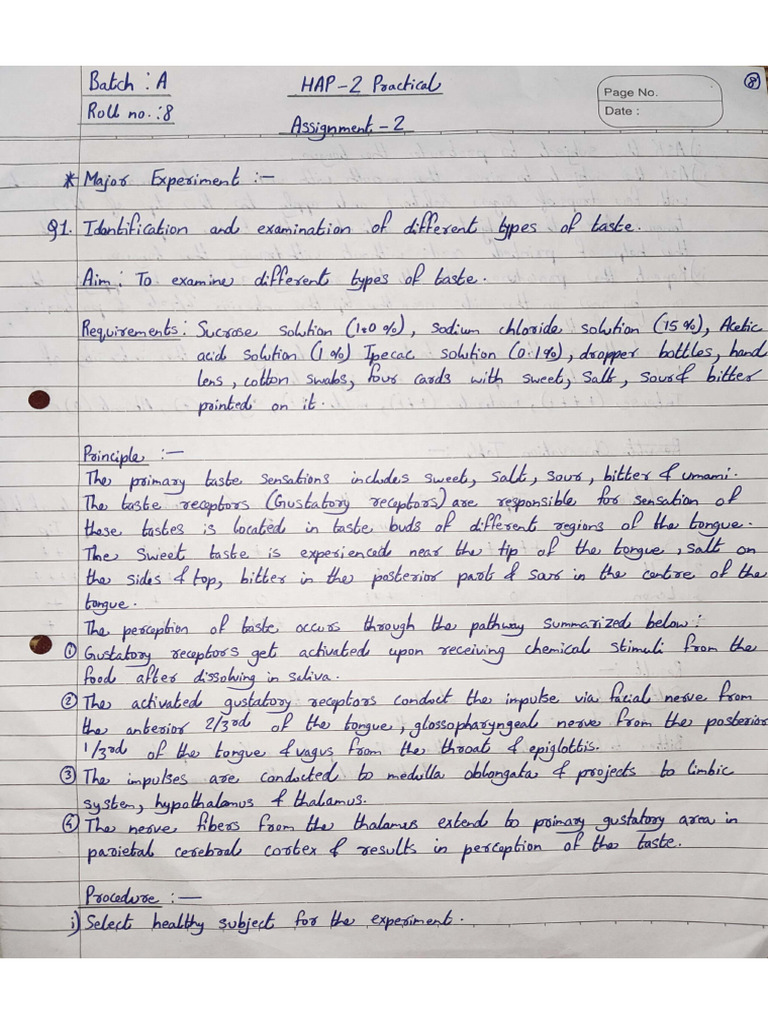 Batch : A
HAP-2 Practical
Page No.
8
Roll no.:8
Date :
Assignment-2
* Major Experiment :-
Q1. Identification and examination of different types of taste.
Aim : To examine different types of taste.
Requirements : Sucrose solution (1.0%), sodium chloride solution (15%), Acetic
acid solution (1%) Ipecac solution (0.1%), dropper bottles, hand
lens, cotton swabs, four cards with sweet, Salt, Sour & bitter
printed on it.
Principle :-
The primary taste sensations includes sweet, salt, sour, bitter & umami.
The taste receptors (Gustatory receptors) are responsible for sensation of
these tastes is located in taste buds of different regions of the tongue.
The Sweet taste is experienced near the tip of the tongue, salt on
the sides & top, bitter in the posterior part & sour in the centre of the
tongue.
The perception of taste occurs through the pathway summarized below :
① Gustatory receptors get activated upon receiving chemical stimuli from the
food after dissolving in saliva.
② The activated gustatory receptors conduct the impulse via facial nerve from
the anterior 2/3rd of the tongue, glossopharyngeal nerve from the posterior
1/3rd of the tongue & vagus from the throat & epiglottis.
③ The impulses are conducted to medulla oblongata & projects to limbic
system, hypothalamus & thalamus.
④ The nerve fibers from the thalamus extend to primary gustatory area in
parietal cerebral cortex & results in perception of the taste.
Procedure :-
i) Select healthy subject for the experiment.